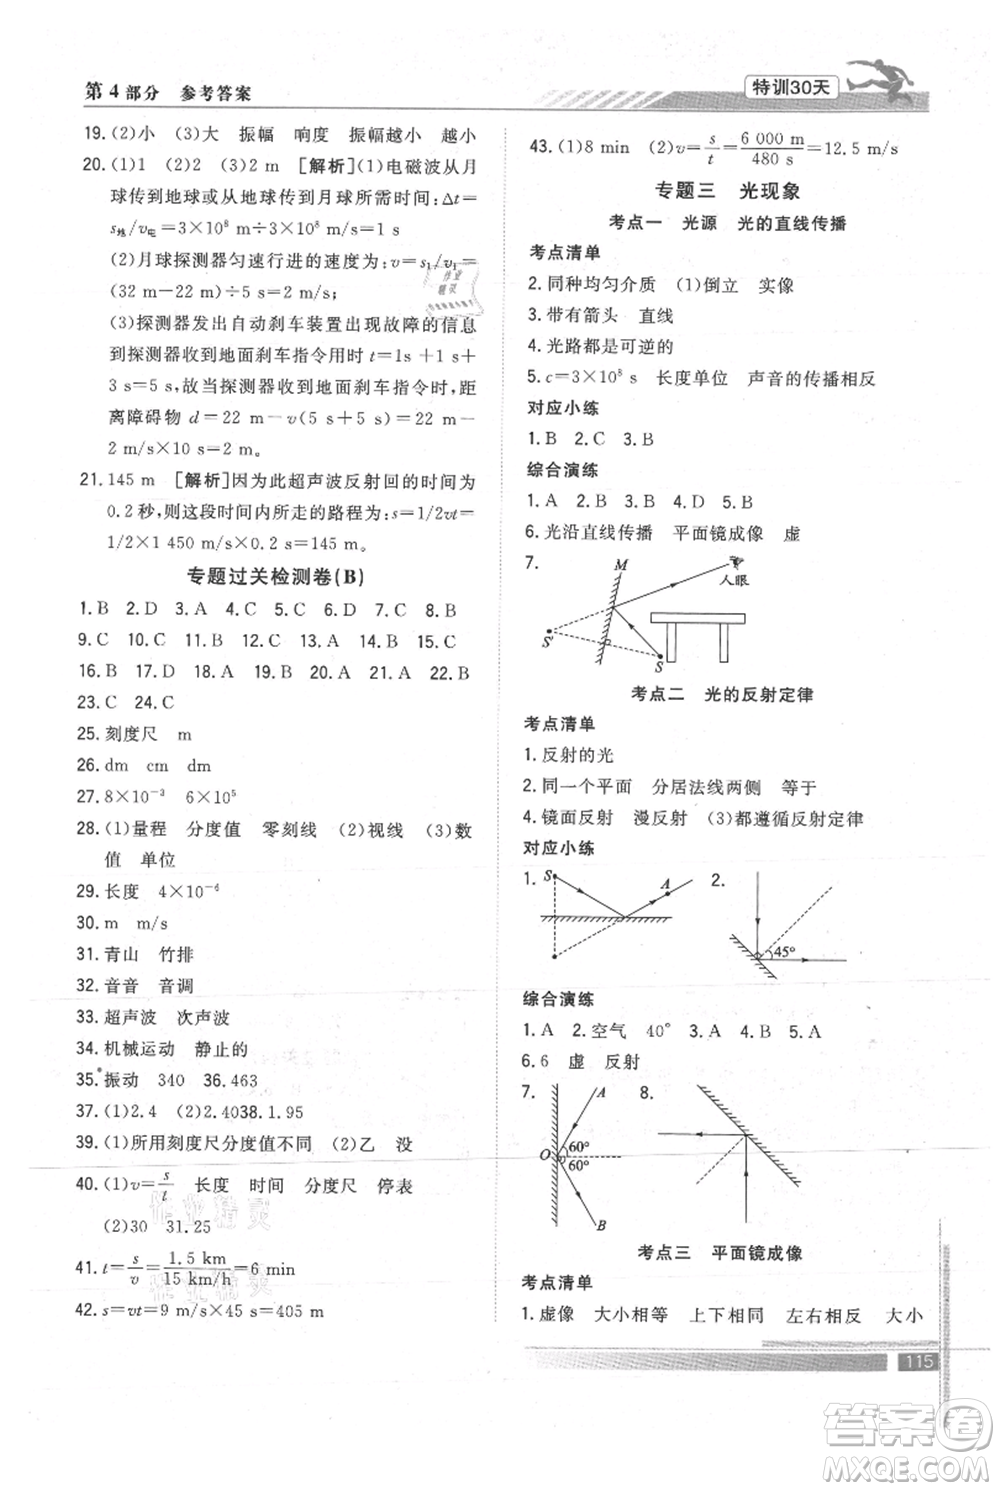 第4部分 参考答案
特训30天
19.(2)小 (3)大 振幅 响度 振幅越小 越小
20.(1)1 (2)2 (3)2 m [解析](1)电磁波从月
球传到地球与从地球传到月球的时间相同,Δt=
s地/v电=3×10⁸ m÷3×10⁸ m/s=1 s
(2)月球探测器匀速行进的速度为:v=s₁/v₁=
(32 m-22 m)÷5 s=2 m/s;
(3)探测器发出自动刹车装置出现故障的信息
到探测器收到地面刹车指令用时t=1s+1 s+
3 s=5 s,故当探测器收到地面刹车指令时,距
离障碍物 d=22 m-v(5 s+5 s)=22 m-
2 m/s×10 s=2 m。
21.145 m [解析]因为此超声波反射回的时间为
0.2秒,则这段时间内所走的路程为:s=1/2vt=
1/2×1 450 m/s×0.2 s=145 m。
专题过关检测卷(B)
1.B 2.D 3.A 4.C 5.C 6.D 7.C 8.B
9.C 10.C 11.B 12.C 13.A 14.B 15.C
16.B 17.B 18.A 19.A 20.A 21.A 22.B
23.C 24.C
25.刻度尺 m
26.dm cm dm
27.8×10⁻³ 6×10⁵
28.(1)量程 分度值 零刻线 (2)视线 (3)数
值 单位
29.长度 4×10⁻⁶
30.m m/s
31.青山 竹排
32.音音 音调
33.超声波 次声波
34.机械运动 静止的
35.振动 340 36.463
37.(1)2.4 (2)2.4038.1.95
39.(1)所用刻度尺分度值不同 (2)乙 没
40.(1)v=s/t 长度 时间 分度尺 停表
(2)30 31.25
41.t=s/v=1.5 km/15 km/h=6 min
42.s=vt=9 m/s×45 s=405 m
43.(1)8 min (2)v=s/t=6 000 m/480 s=12.5 m/s
专题三 光现象
考点一 光源 光的直线传播
考点清单
2.同种均匀介质 (1)倒立 实像
3.带有箭头 直线
4.光路都是可逆的
5.c=3×10⁸ s 长度单位 声音的传播相反
对应小练
1.B 2.C 3.B
综合演练
1.A 2.B 3.C 4.D 5.B
6.光沿直线传播 平面镜成像 虚
7.
M
人眼
S'
S
考点二 光的反射定律
考点清单
1.反射的光
2.同一个平面 分居法线两侧 等于
4.镜面反射 漫反射 (3)都遵循反射定律
对应小练
1. S A 2.
45°
综合演练
1.A 2.空气 40° 3.A 4.B 5.A
6.6 虚 反射
7. A 8.
O 60°
60°
B
考点三 平面镜成像
考点清单
1.虚像 大小相等 上下相同 左右相反 大小
115
作业
精灵
作业精灵
作业精灵
答案卷
MXQE.COM